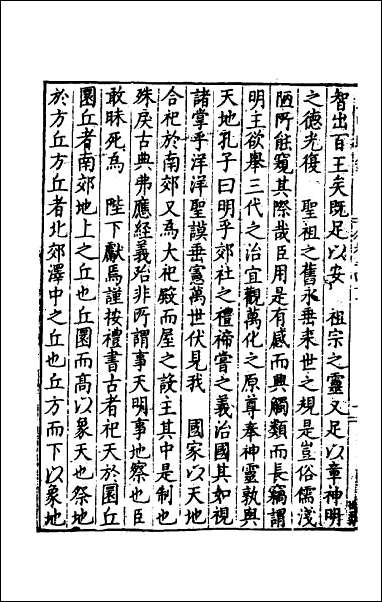 智出百王矣既足以安　祖宗之靈又足以章神明
之德光復　聖祖之舊永垂来世之規是豈俗儒淺
陋所能窺其際哉臣用是有感而興觸類而長竊謂
明主欲舉三代之治宜觀萬化之原尊奉神靈孰與
天地孔子曰明乎郊社之禮禘嘗之義治國其如視
諸掌乎洋洋聖謨垂憲萬世伏見我　國家以天地
合祀於南郊又為大祀殿而屋之設主其中是制也
殊戾古典弗應經義殆非所謂事天明事地察也臣
敢昧死為　陛下獻焉謹按禮書古者祀天於圜丘
圜丘者南郊地上之丘也丘圜而髙以象天也祭地
於方丘方丘者北郊澤中之丘也丘方而下以象地